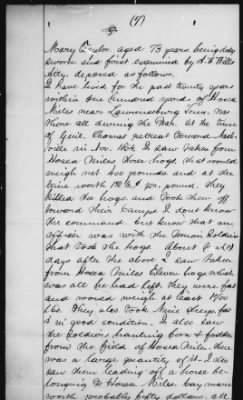 (7)
Mary Taylor, aged 73 years being duly
sworn and first examined by A. W. Wills
Atty. deposed as follows.
I have lived for the past twenty years
within one hundred yards of Hosea
Miles near Lawrenceburg Tenn. was
there all during the War. At the time
of Genl. Thomas retreat toward Nash-
ville in Nov. 1864, I saw taken from
Hosea Miles three hogs, that would
weigh net 600 pounds and at the
time worth pr. pound. They
killed the hogs and took them off
toward their Camps. I dont know
the command, but know that an
officer was with the Union Soldiers
that took the hogs. About
days after the above I saw taken
from Hosea Miles Eleven hogs which
was all he had left. They were fat
and would weigh at least
lbs. They also took nine sheep, fat
& in good condition. I also saw
the Soldiers hauling corn & fodder
from the field of Hosea Miles. there
was a large quantity of it. I also
saw them leading off a horse be-
longing to Hosea Miles. bay mare
worth probably fifty dollars. all